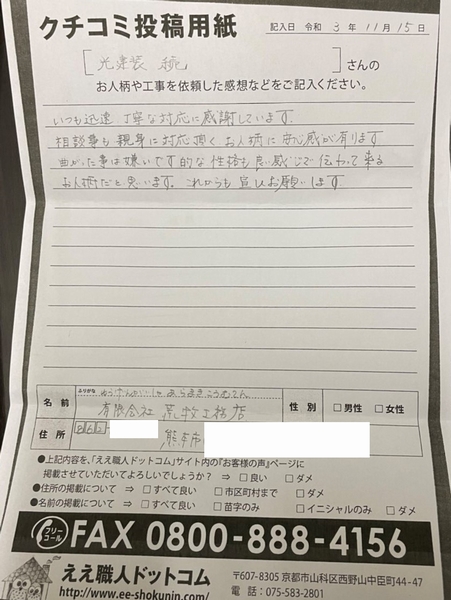 クチコミ投稿用紙
記入日 令和 3 年 11 月 15 日
[光塗装 ] さんの
お人柄や工事を依頼した感想などをご記入ください。
いつも迅速、丁寧な対応に感謝しています。
相談事も親身に対応頂くお人柄に安心感が有ります
曲がった事は嫌いです的な性格も良い感じで伝わって来る
お人柄だと思います。これからも宜しくお願いします
ふりがな ゆうげんがいしゃあらまきこうむてん
名前 有限会社 荒牧工務店 性別 □男性 □女性
住所 熊本市
●上記内容を、「ええ職人ドットコム」サイト内の『お客様の声』ページに
掲載させていただいてよろしいでしょうか? ⇒ □良い □ダメ
●住所の掲載について ⇒ □すべて良い □市区町村まで □ダメ
●名前の掲載について ⇒ □すべて良い □苗字のみ □イニシャルのみ □ダメ
フリーコール FAX 0800-888-4156
ええ職人ドットコム
http://www.ee-shokunin.com/
〒607-8305 京都市山科区西野山中臣町44-47
電話:075-583-2801